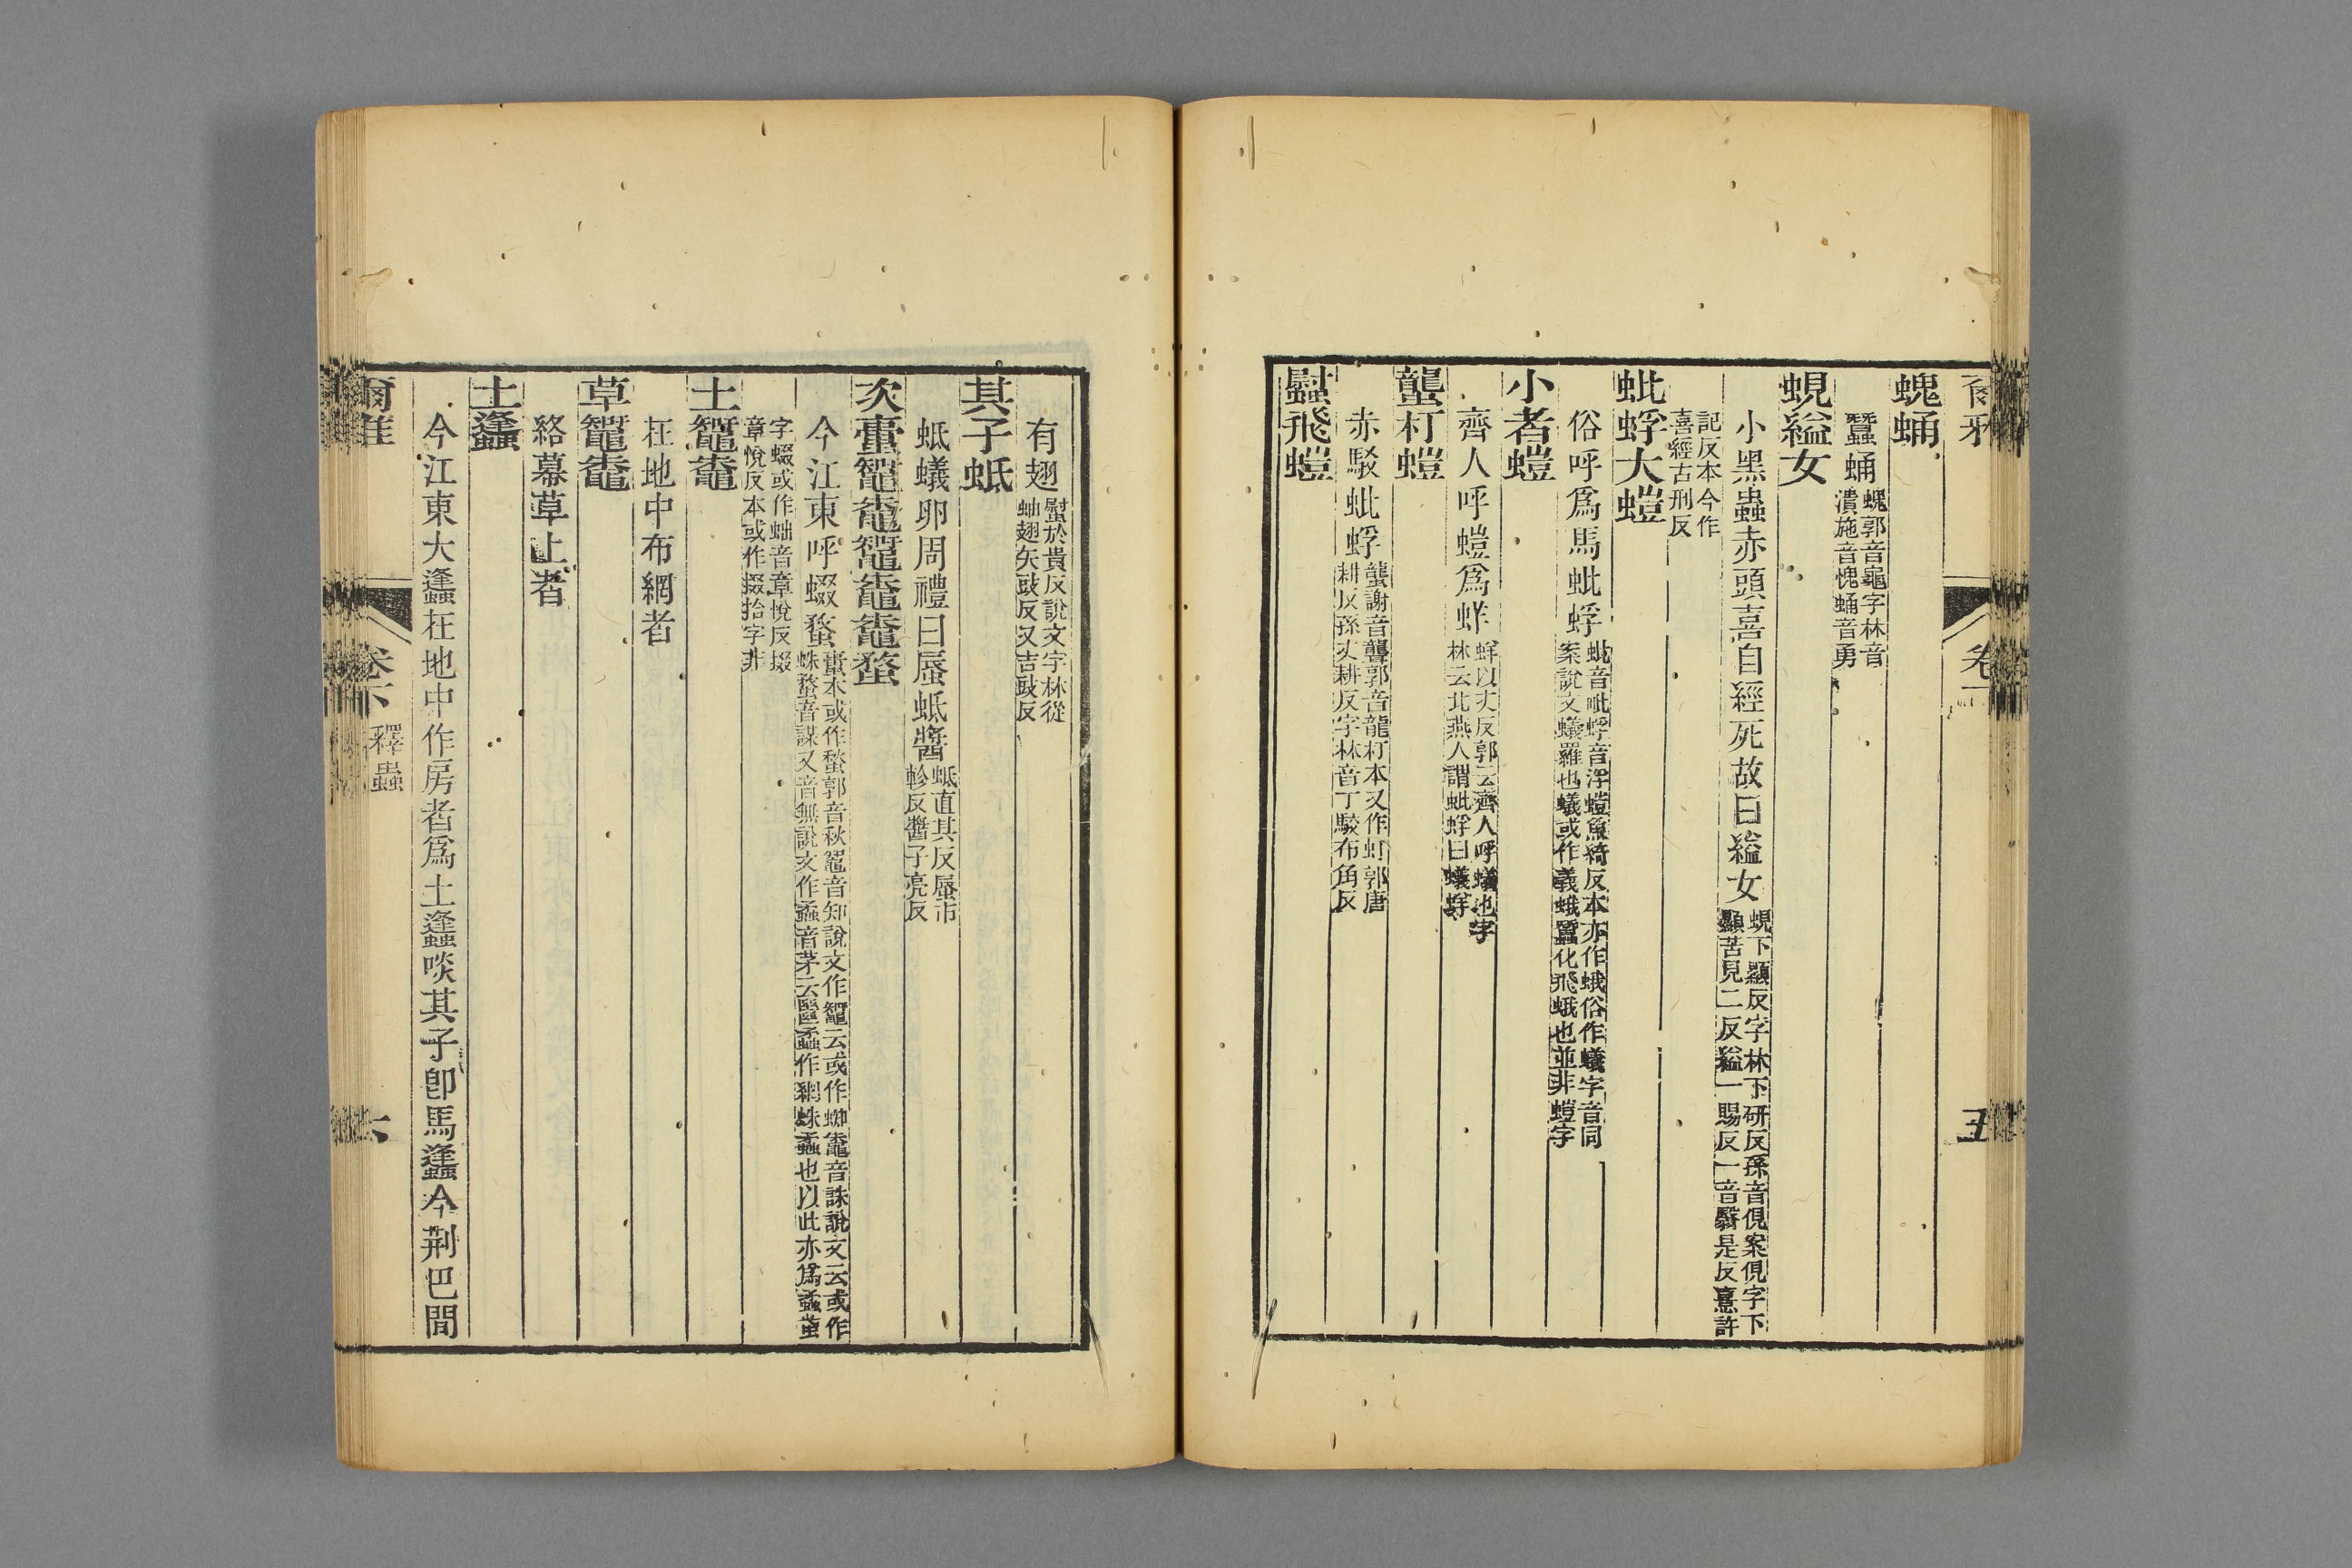 螝蛹
蠶蛹螝郭音龜字林音
潰施音愧蛹音勇
蜆縊女
小黑蟲赤頭喜自經死故曰縊女蜆下顯反字林下研反孫音俔案俔字下
顯苦見二反縊一賜反一音翳是反憙許
記反本今作
喜經古刑反
蚍蜉大螘
俗呼爲馬蚍蜉蚍音毗蜉音浮螘魚綺反本亦作蛾俗作蟻字音同
案說文蟻羅也蟻或作義蛾蠶化飛蛾也並非螘字
小者螘
齊人呼螘爲蛘蛘以丈反郭云齊人呼蟻也字
林云北燕人謂蚍蜉曰蟻蛘
蠪朾螘
赤駁蚍蜉蠪謝音聾郭音龍朾本又作虰郭唐
耕反孫丈耕反字林音丁駮布角反
螱飛螘
有翅螱於貴反說文字林從
蚰翅矢豉反又吉豉反
其子蚳
蚳蟻卵周禮曰蜃蚳醬蚳直其反蜃市
軫反醬子亮反
次蟗鼅鼄鼅鼄鼄蝥
今江東呼蝃蝥蟗本或作蝵郭音秋鼅音知說文作鼅云或作蜘鼄音誅說文云或作
蛛蝥音謀又音無說文作蟊音茅云鼅蟊作網蛛蟊也以此亦爲蟊蚩
字蝃或作蚰音章悅反掇
章悅反本或作掇拾字非
土鼅鼄
在地中布網者
草鼅鼄
絡幕草上者
土蠭
今江東大蠭在地中作房者爲土蠭啖其子卽馬蠭今荆巴閒
爾雅
卷下
釋蟲
六
卷下
五